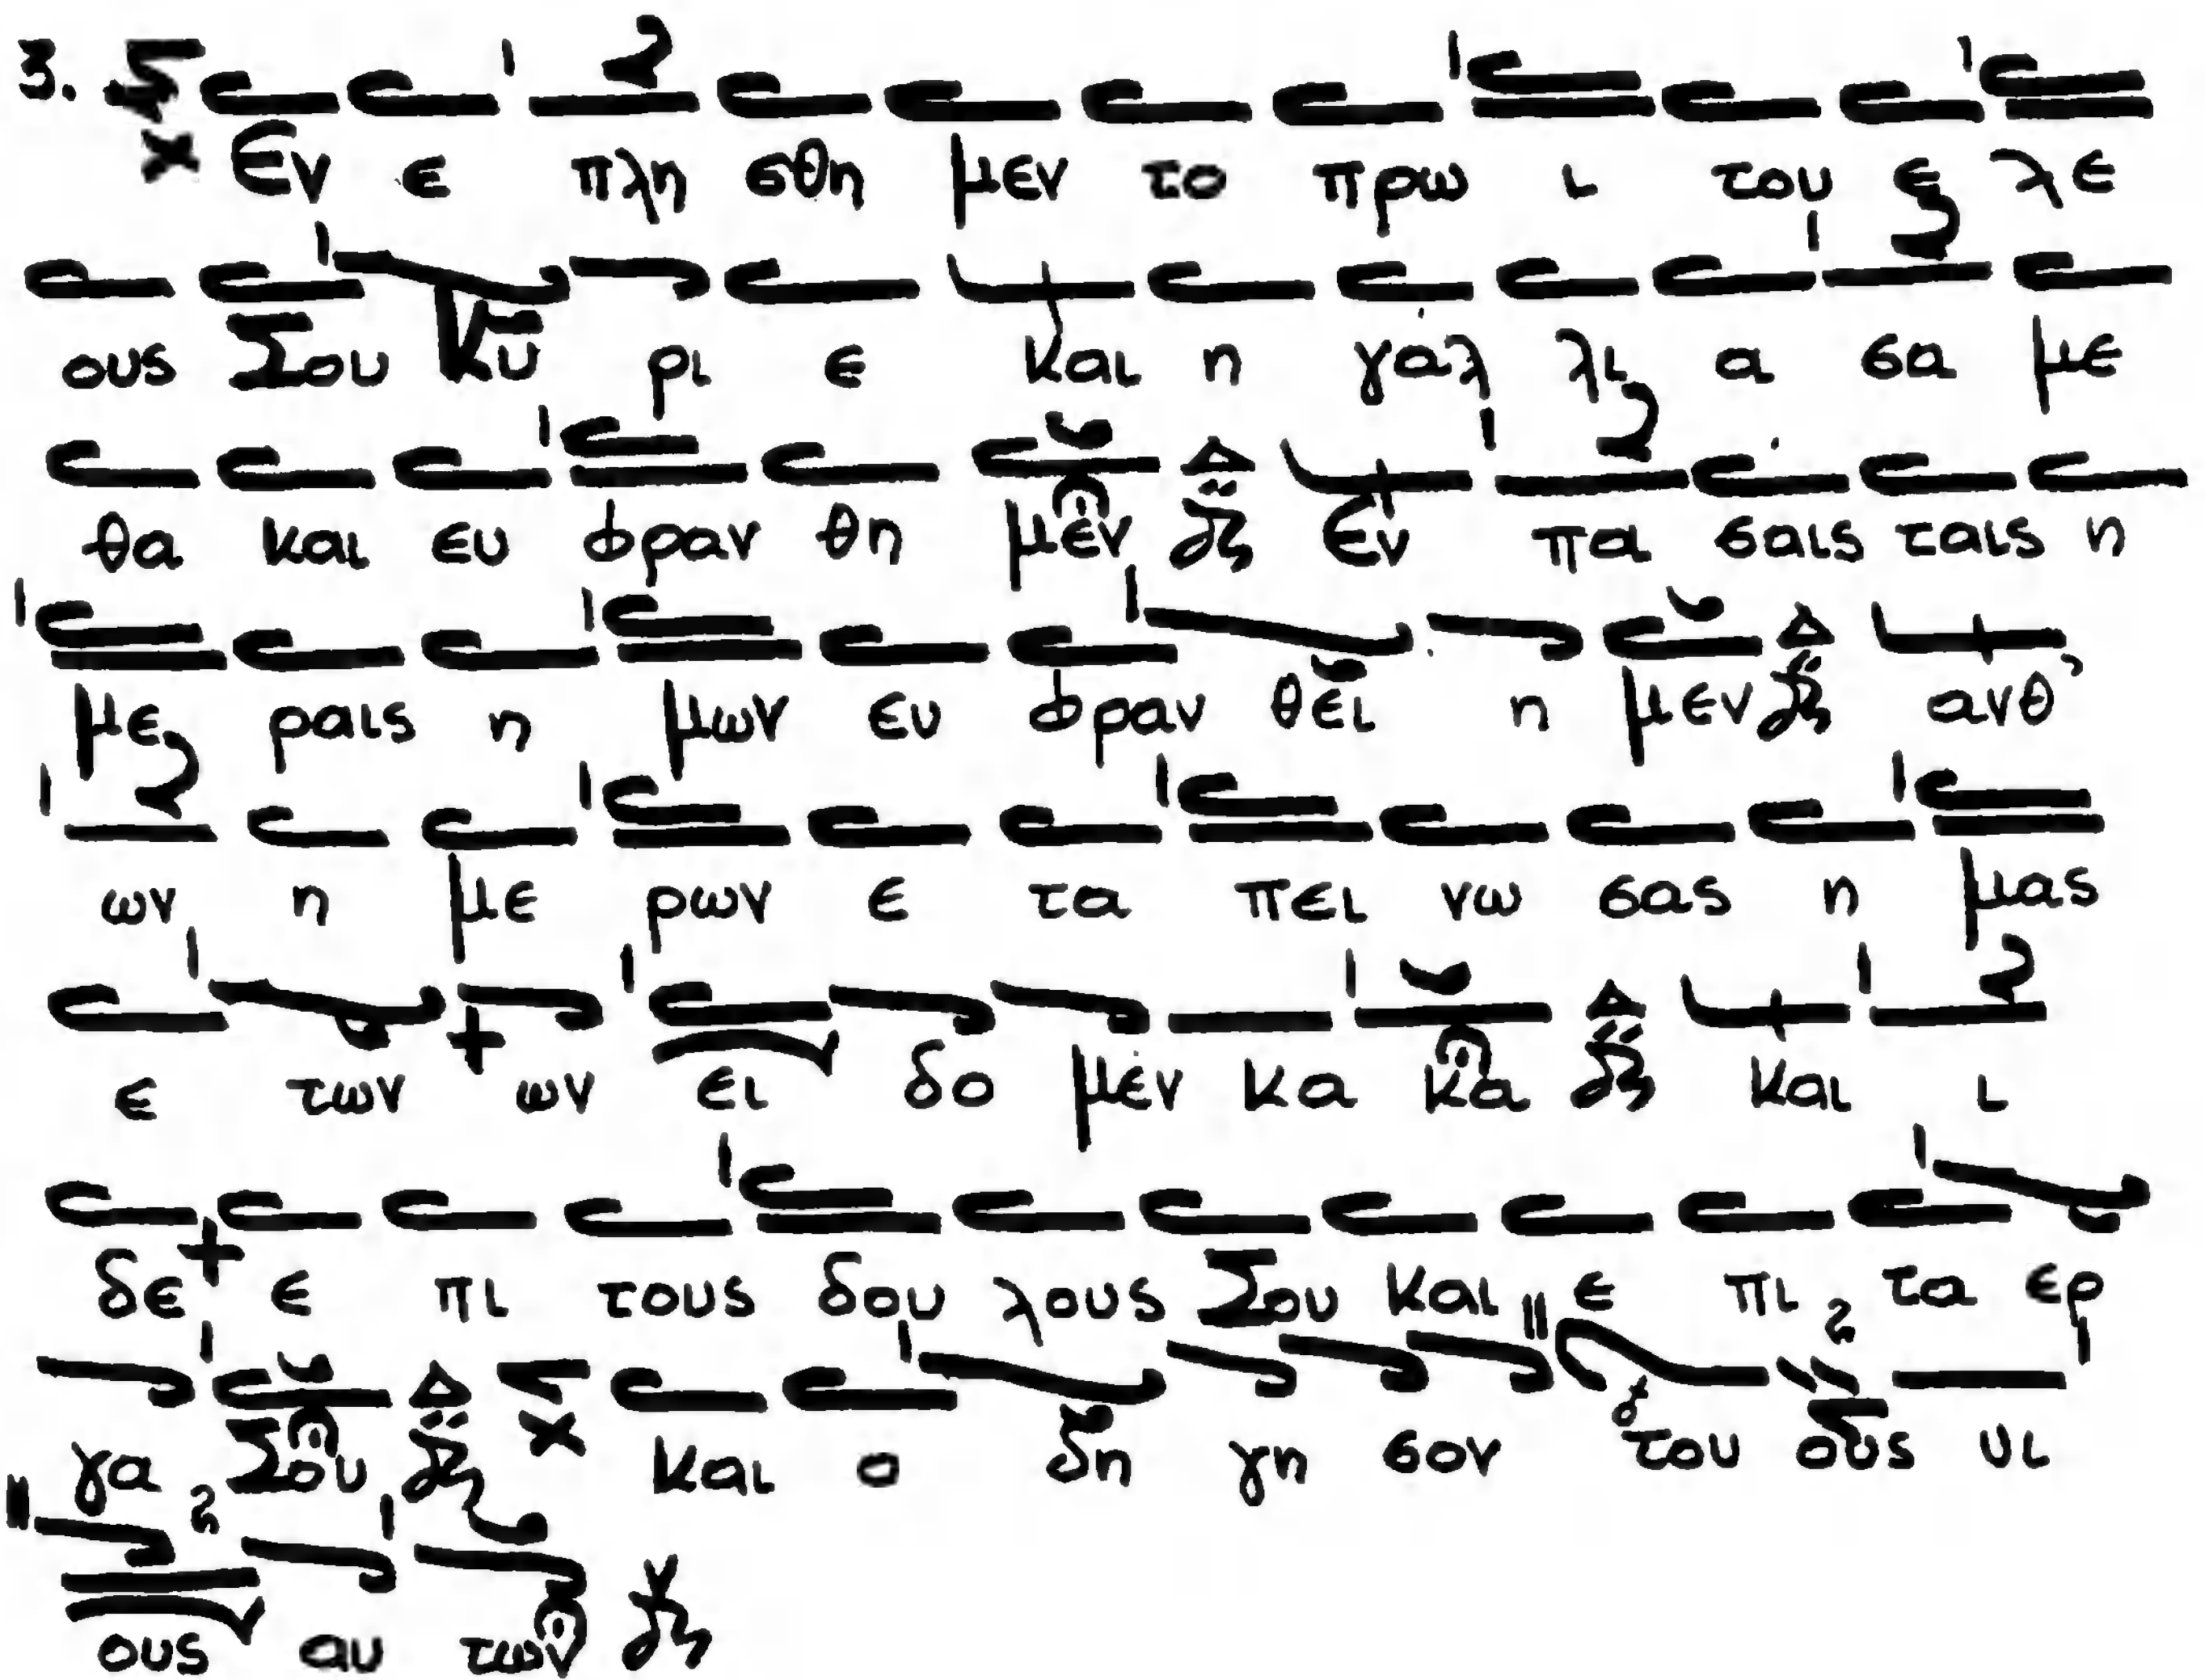 3. Εν ε πλη σθη μεν το πρω ι του ε λε
ους Σου Κυ ρι ε και η γαλ λι α σα με
θα και ευ φραν θη μεν εν πα σαις ταις η
με ραις η μων ευ φραν θει η μεν ανθ'
ων η με ρων ε τα πει νω σας η μας
ε των ων ει δο μεν κα κα και ι
δε ε πι τους δου λους Σου και ε πι τα ερ
γα Σου και ο δη γη σον του ους υι
ους αυ των